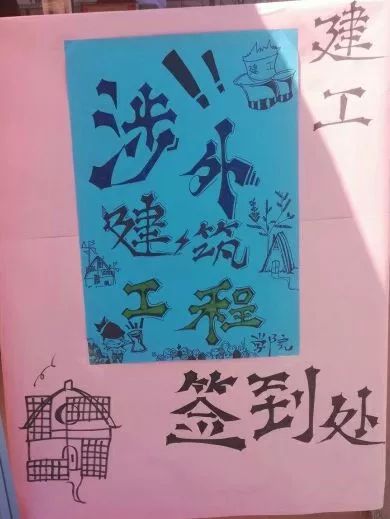 建工
涉外!!
建工
建筑
工程
学院
签到处